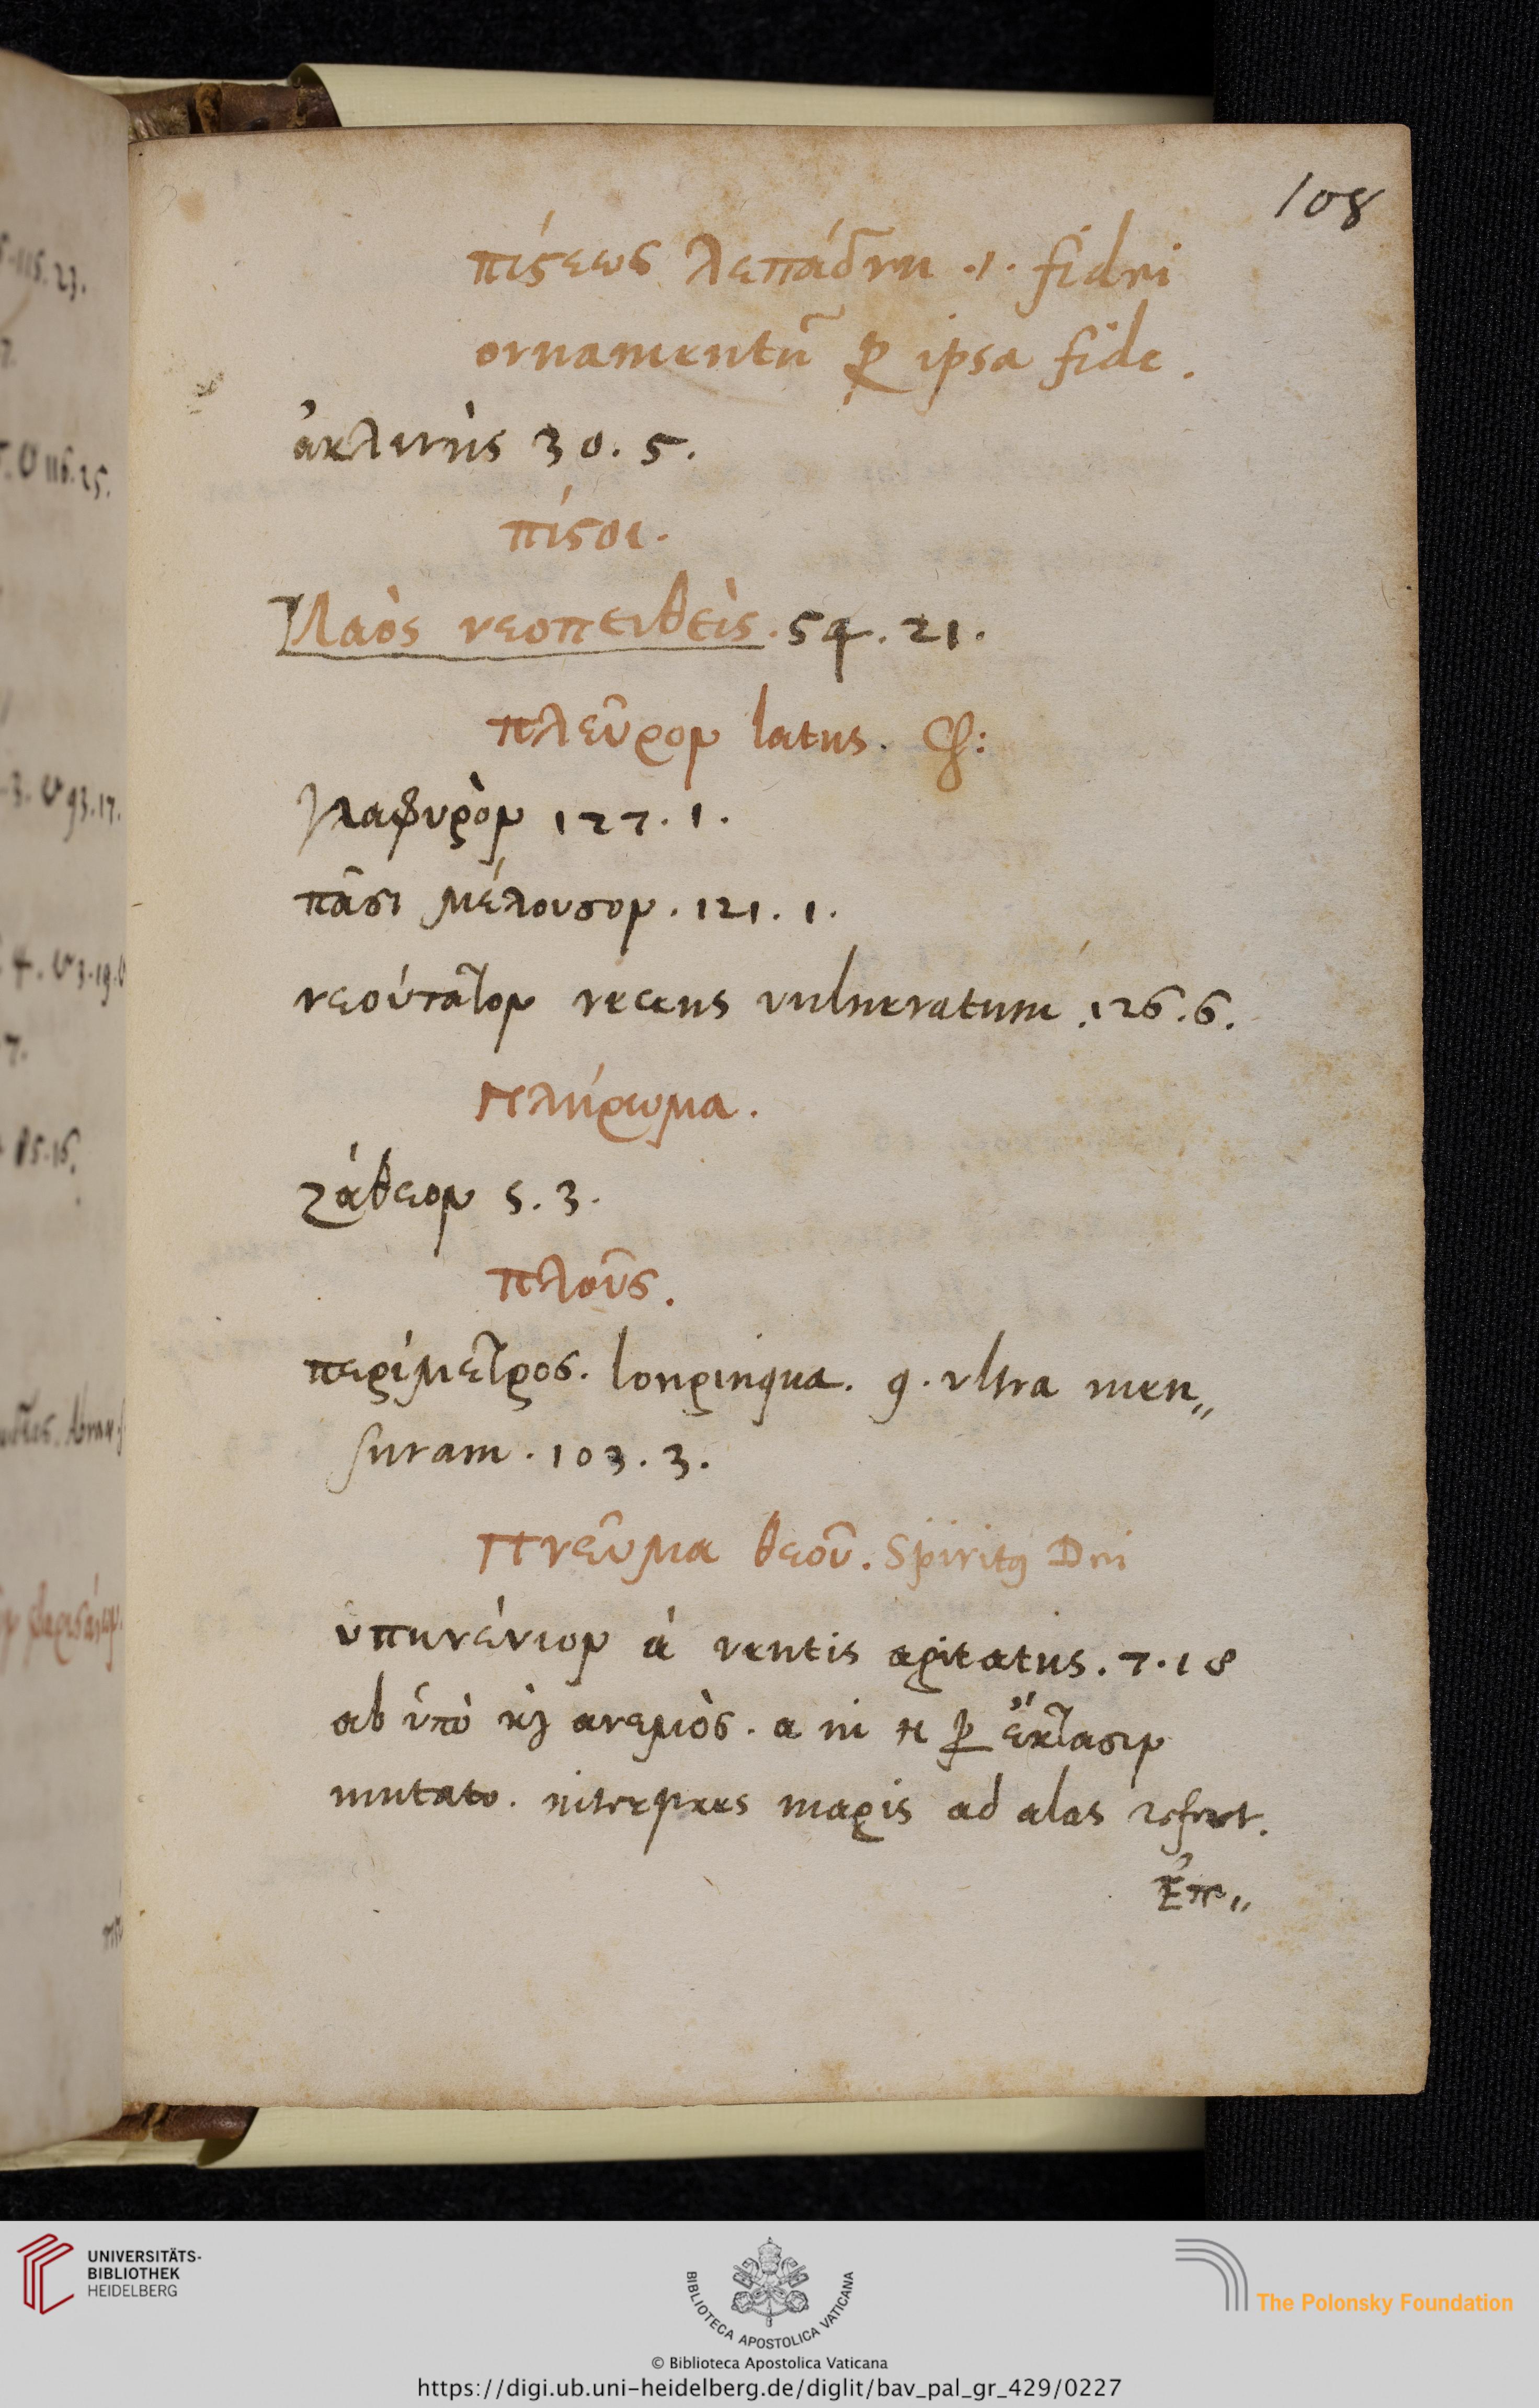 108
πίςεως λεπάδνη .ι. fidei
ornamentũ ꝑ ipsa fide.
ἀκλινὴς 30. 5.
πίςοι.
Λαὸς νεοπειθεὶς. 54. 21.
πλεῦρον latus.
γλαφυρὸν 127. 1.
πᾶσι μέλουσον. 121. 1.
νεούτατον recens vulneratum .126. 6.
πλήρωμα.
ζάθεον 5. 3.
πλοῦς.
περίμετρος. longinqua. q. ultra men„
suram. 103. 3.
Πνεῦμα θεοῦ. Spiritꝰ Dei
ὑπηνένιον à ventis agitatus. 7. 18
ab ὑπὸ κὶ ανεμὸς. a in η ꝑ ἔκτασιν
mutato. interpres magis ad alas refert.
Ἐπ„
UNIVERSITÄTS-
BIBLIOTHEK
HEIDELBERG
BIBLIOTECA APOSTOLICA VATICANA
The Polonsky Foundation
© Biblioteca Apostolica Vaticana
https://digi.ub.uni-heidelberg.de/diglit/bav_pal_gr_429/0227